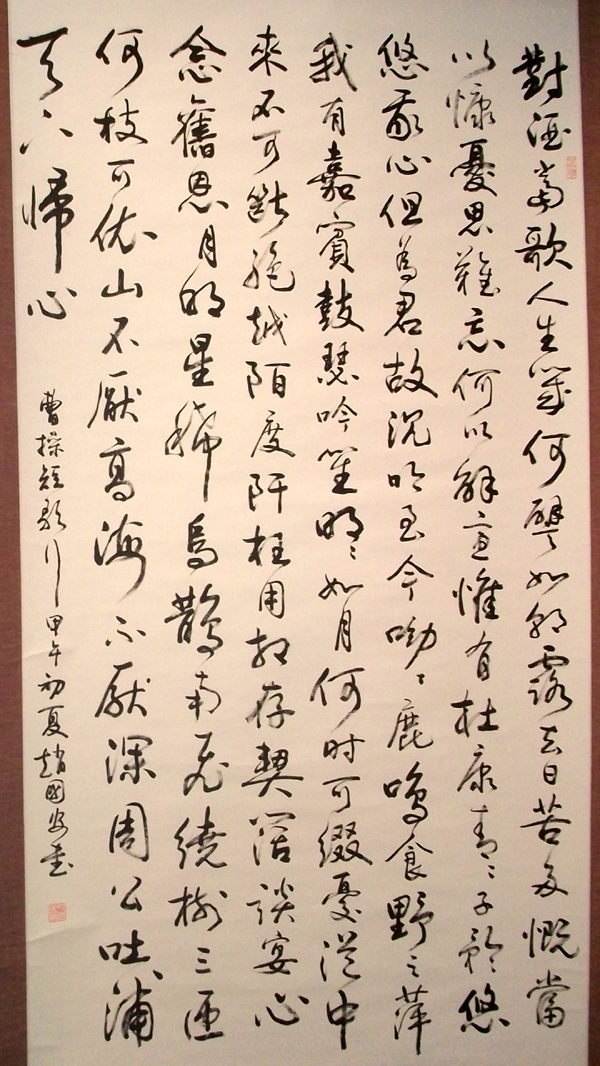 對酒當歌人生幾何譬如朝露去日苦多慨當
以慷憂思難忘何以解憂惟有杜康青々子衿悠
悠我心但為君故沉吟至今呦々鹿鳴食野之萍
我有嘉賓鼓瑟吟笙明々如月何时可綴憂從中
來不可斷絕越陌度阡枉用相存契闊談宴心
念舊恩月明星稀烏鵲南飛繞樹三匝
何枝可依山不厭高海不厭深周公吐浦
天下歸心
曹操短歌行甲午初夏趙國安書